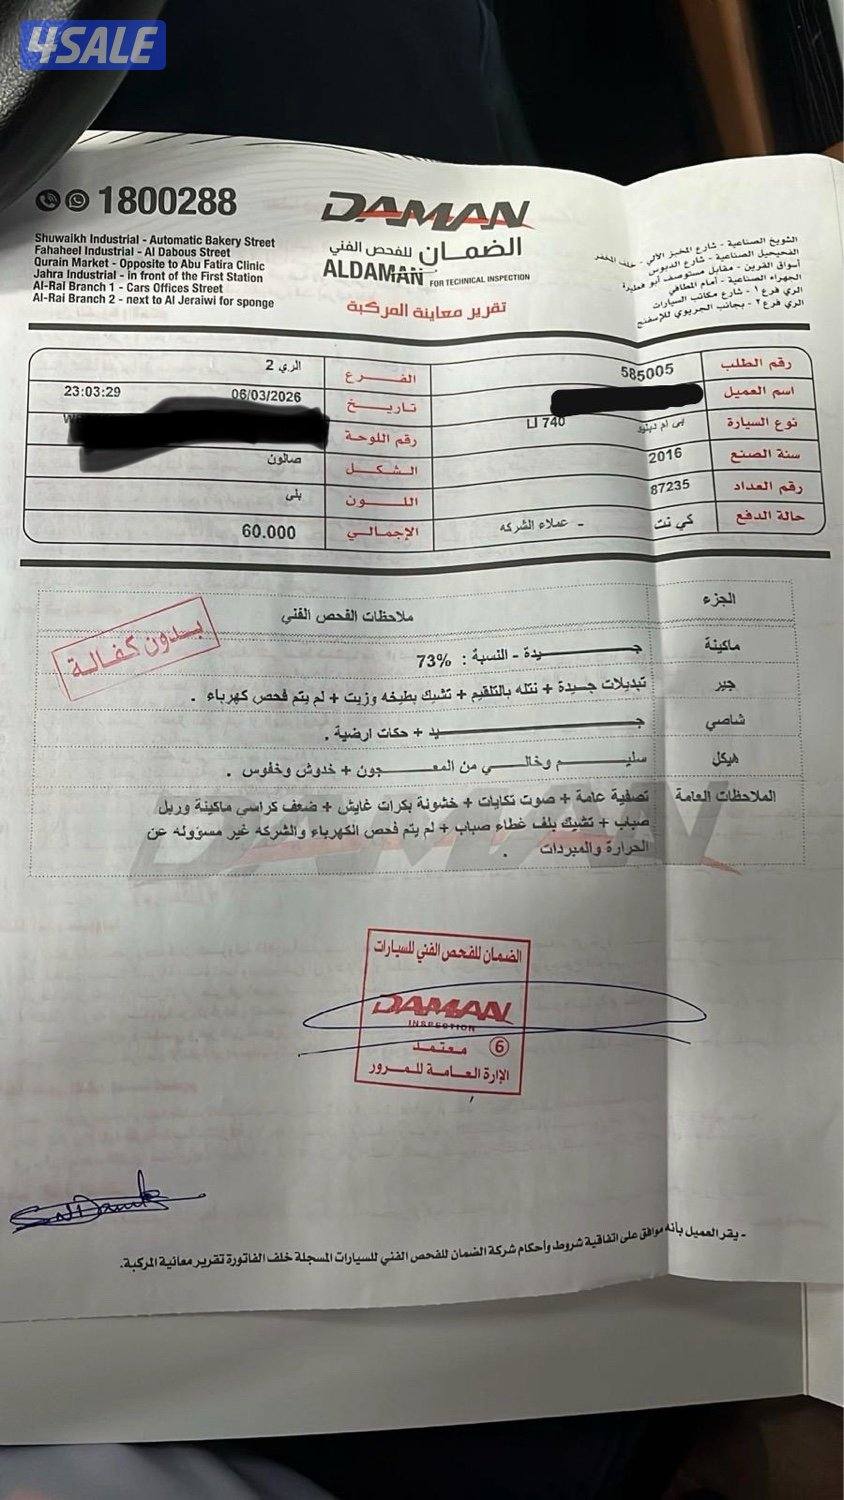 4SALE
1800288
Shuwaikh Industrial - Automatic Bakery Street
Fahaheel Industrial - Al Dabous Street
Qurain Market - Opposite to Abu Fatira Clinic
Jahra Industrial - in front of the First Station
Al-Rai Branch 1 - Cars Offices Street
Al-Rai Branch 2 - next to Al Jeraiwi for sponge
DAMAN
الضمـــان للفحص الفني
ALDAMAN FOR TECHNICAL INSPECTION
تقرير معاينة المركبة
الشويخ الصناعية - شارع المخبز الآلي - خلف المخفر
الفحيحيل الصناعية - شارع الدبوس
أسواق القرين - مقابل مستوصف أبو فطيرة
الجهراء الصناعية - أمام المطافي
الري فرع ١ - شارع مكاتب السيارات
الري فرع ٢ - بجانب الجريوي للإسفنج
رقم الطلب 585005 الفـــرع الري 2
اسم العميل تاريـــخ 06/03/2026 23:03:29
نوع السيارة بي ام دبليو LI 740 رقم اللوحة
سنة الصنع 2016 الشكـــل صالون
رقم العداد 87235 اللـــون بلى
حالة الدفع كي نت - عملاء الشركه الإجمالـي 60.000
الجزء ملاحظات الفحص الفني
بـدون كفـالـة
ماكينة جـــــيدة - النسبة : 73%
جير تبديلات جـيدة + نتله بالتلقيم + تشيك بطيخه وزيت + لم يتم فحص كهرباء .
شاصي جـــــيد + حكات ارضية .
هيكل سليـــم وخالـــي من المعـــجون + خدوش وخفوس .
الملاحظات العامة تصفية عامة + صوت تكايات + خشونة بكرات غايش + ضعف كراسي ماكينة وربل
صباب + تشيك بلف غطاء صباب + لم يتم فحص الكهرباء والشركه غير مسؤوله عن
الحرارة والمبردات .
DAMAN
الضمان للفحص الفني للسيارات
DAMAN
INSPECTION
معتمد 6
الإرة العـامـة للمـرور
- يقر العميل بأنه موافق على اتفاقية شروط وأحكام شركة الضمان للفحص الفني للسيارات المسجلة خلف الفاتورة تقرير معانية المركبة.